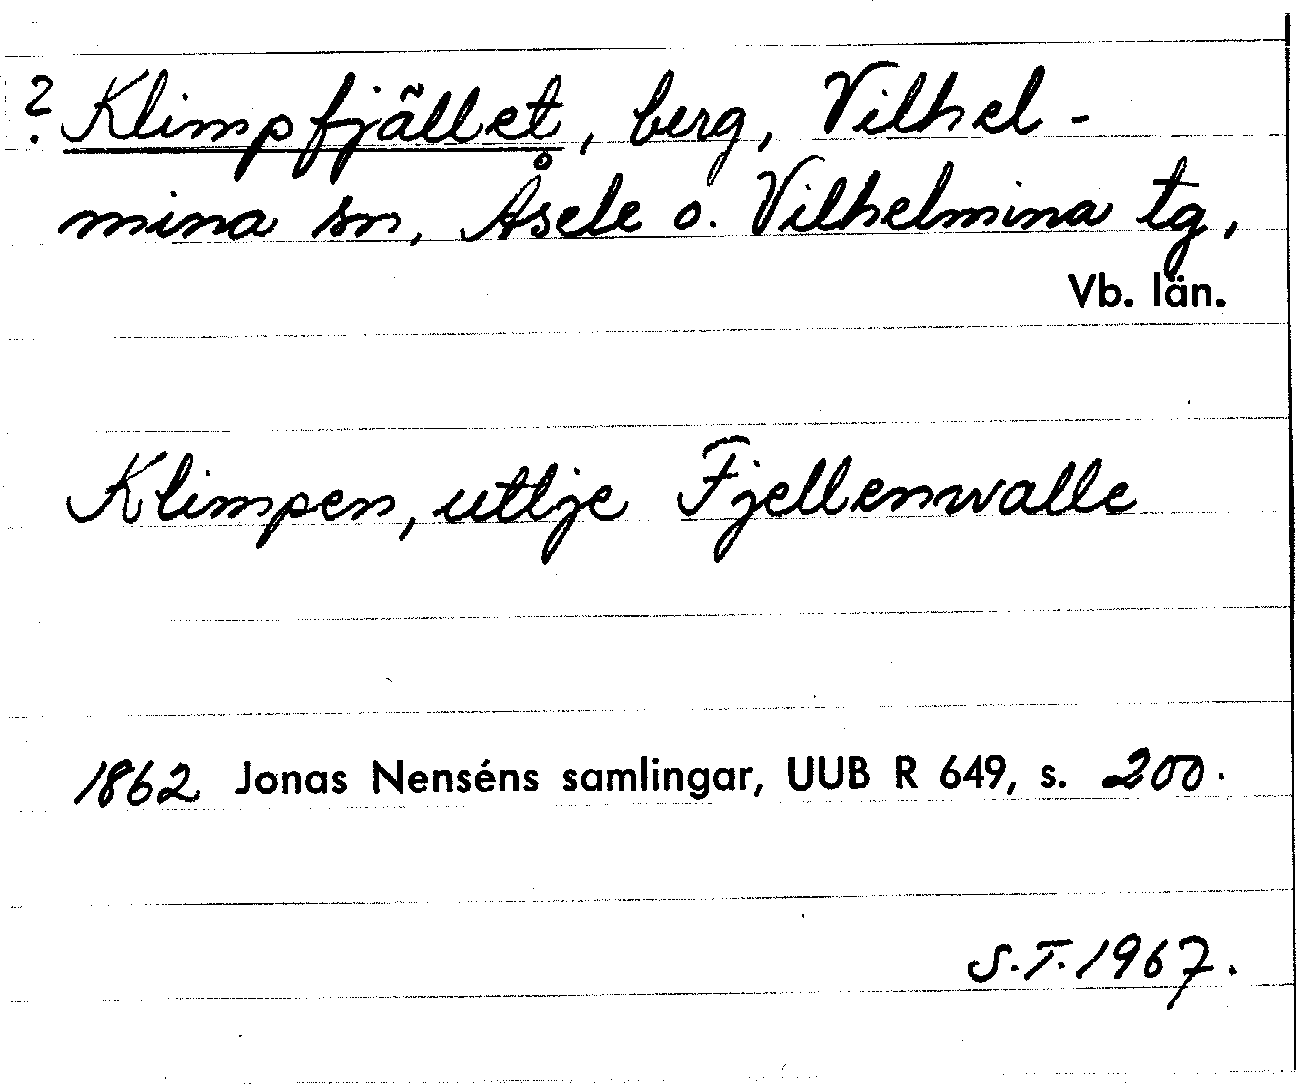 ? Klimpfjället, berg, Vilhel-
mina sn, Åsele o. Vilhelmina tg,
Vb. län.
Klimpen, utlje Fjellenwalle
1862 Jonas Nenséns samlingar, UUB R 649, s. 200.
S.T. 1967.